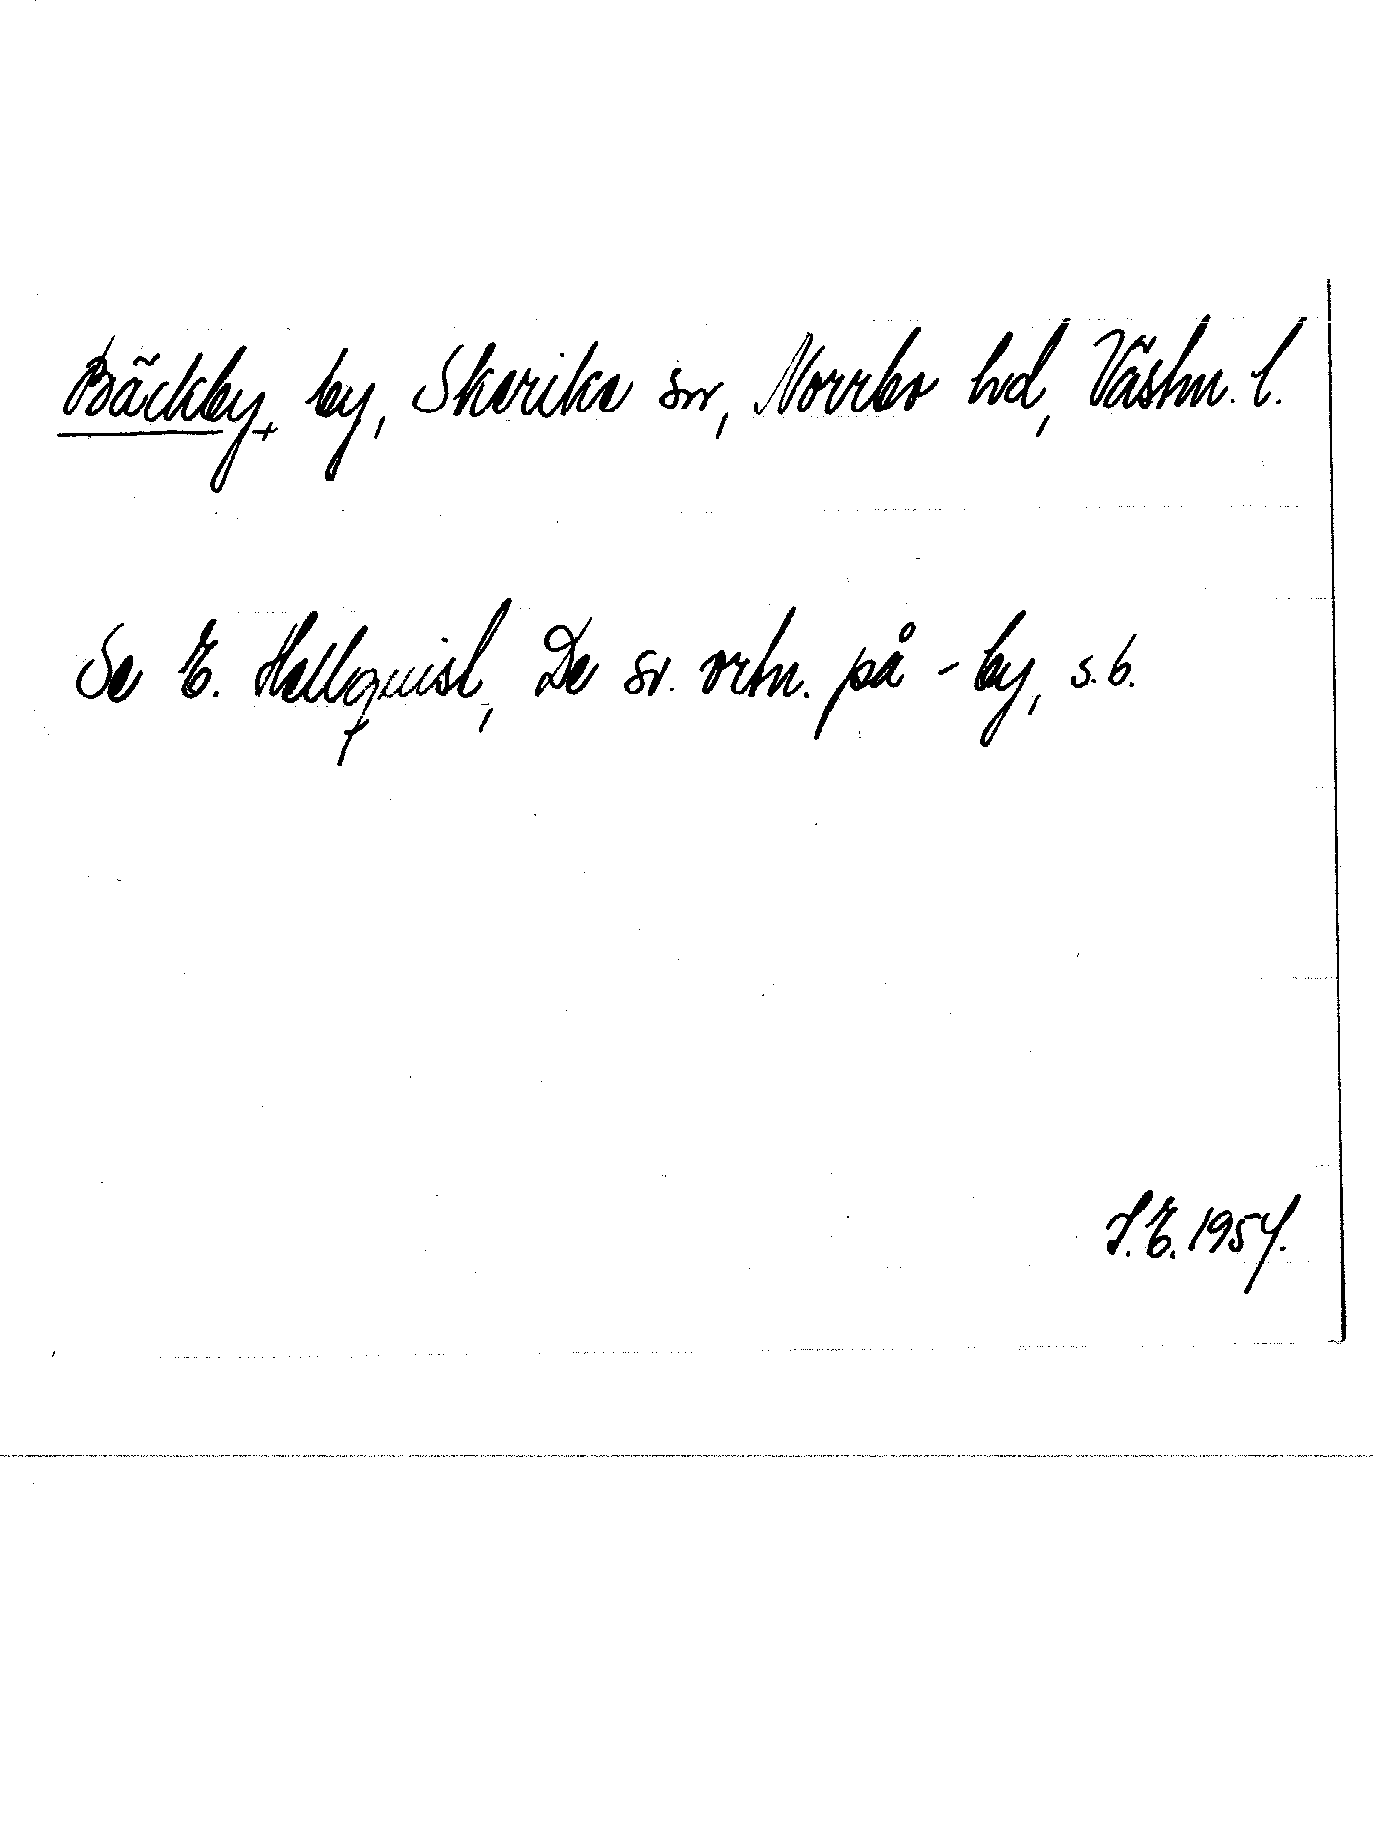 Bäckby, by, Skerike sn, Norrbo hd, Västm. l.
Se E. Hellquist, De sv. ortn. på -by, s. 6.
I. E. 1954.